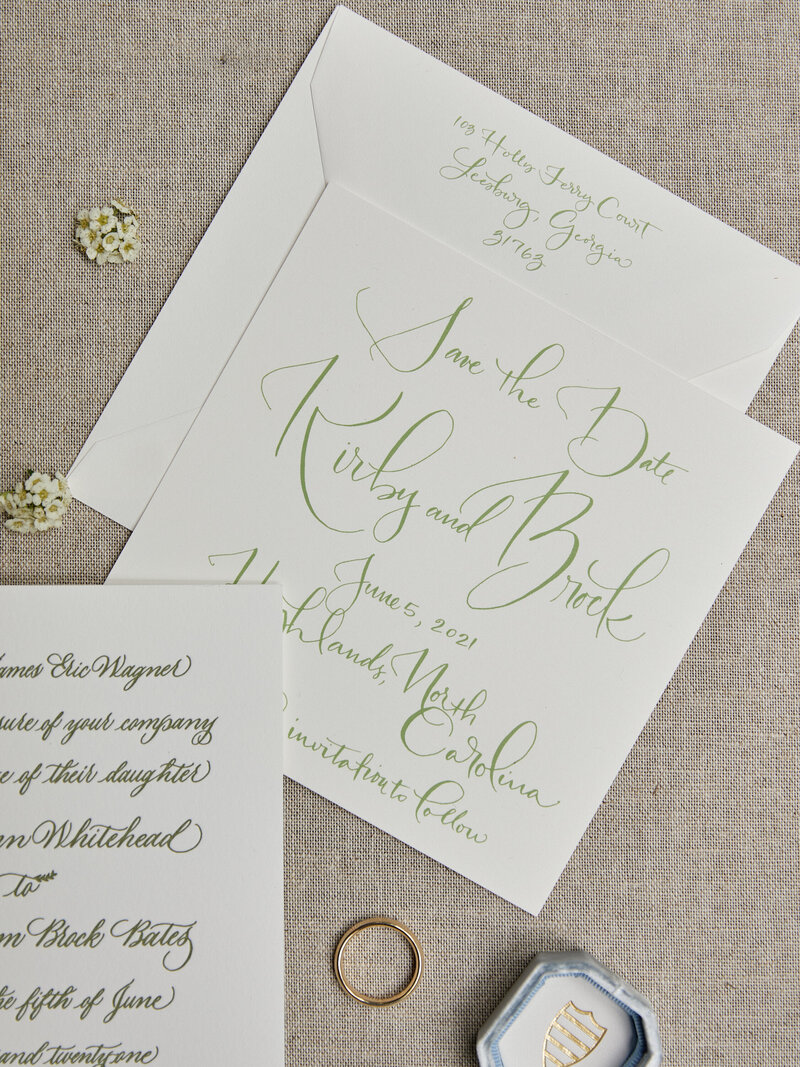 103 Holly Ferry Court
Leesburg, Georgia
31763
Save the Date
Kirby and Brock
June 5, 2021
Highlands, North
Carolina
invitation to follow
James Eric Wagner
sure of your company
e of their daughter
nn Whitehead
to
m Brock Bates
he fifth of June
and twenty one